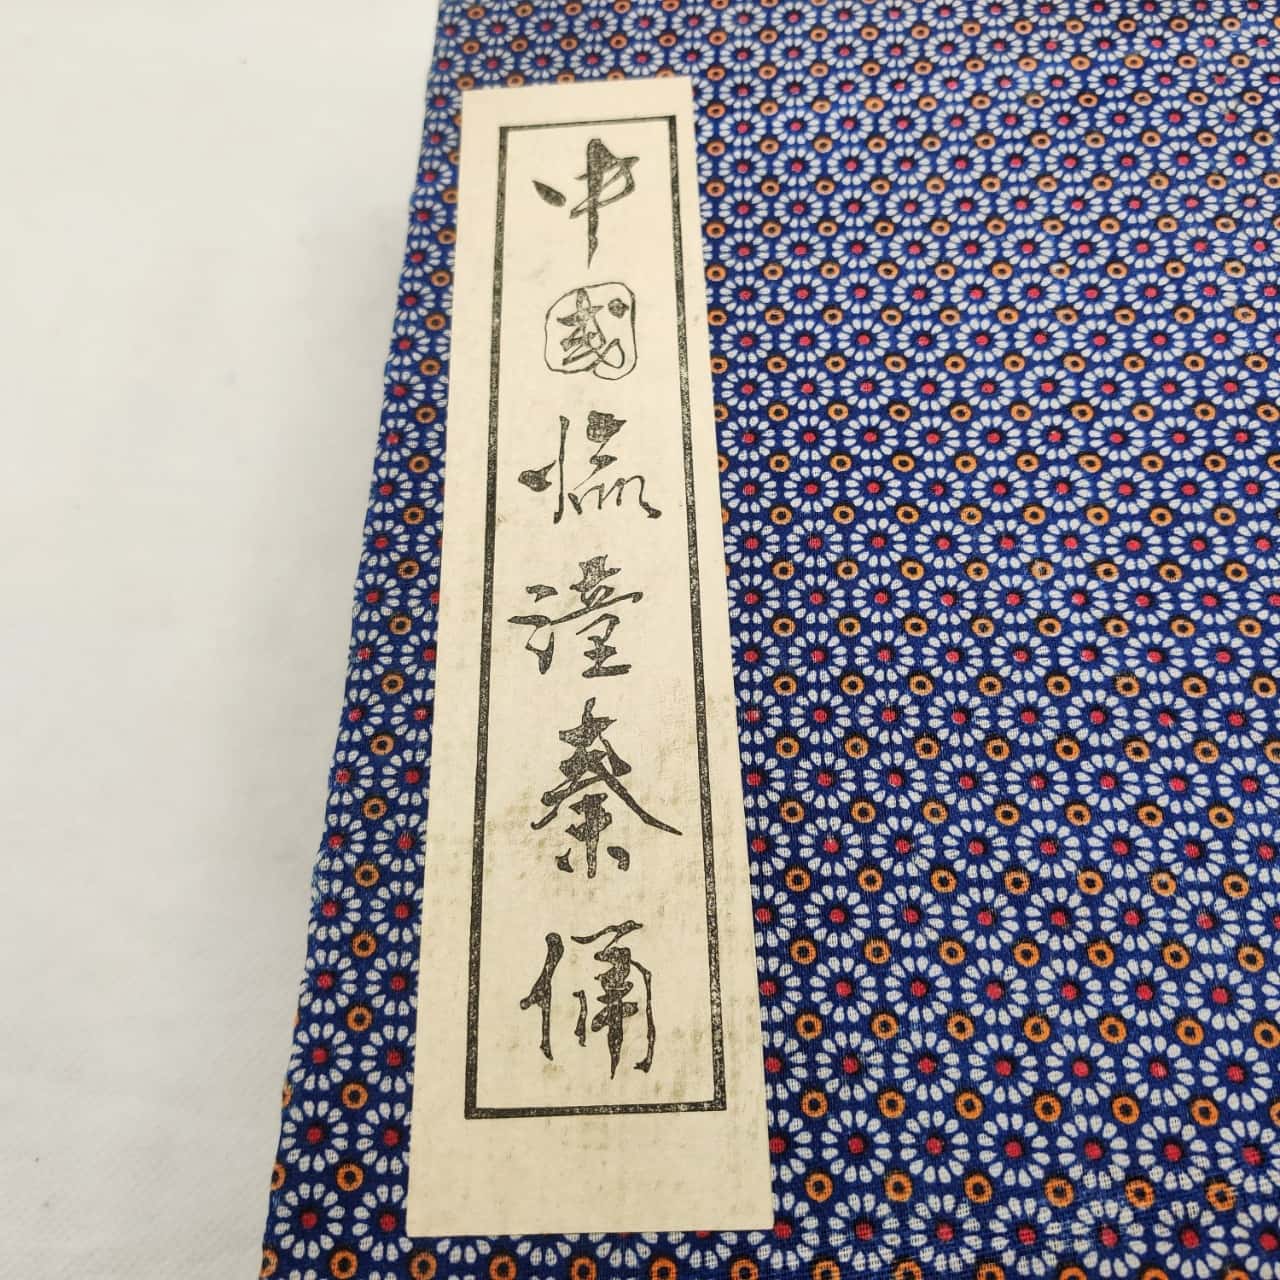 中國臨潼秦俑